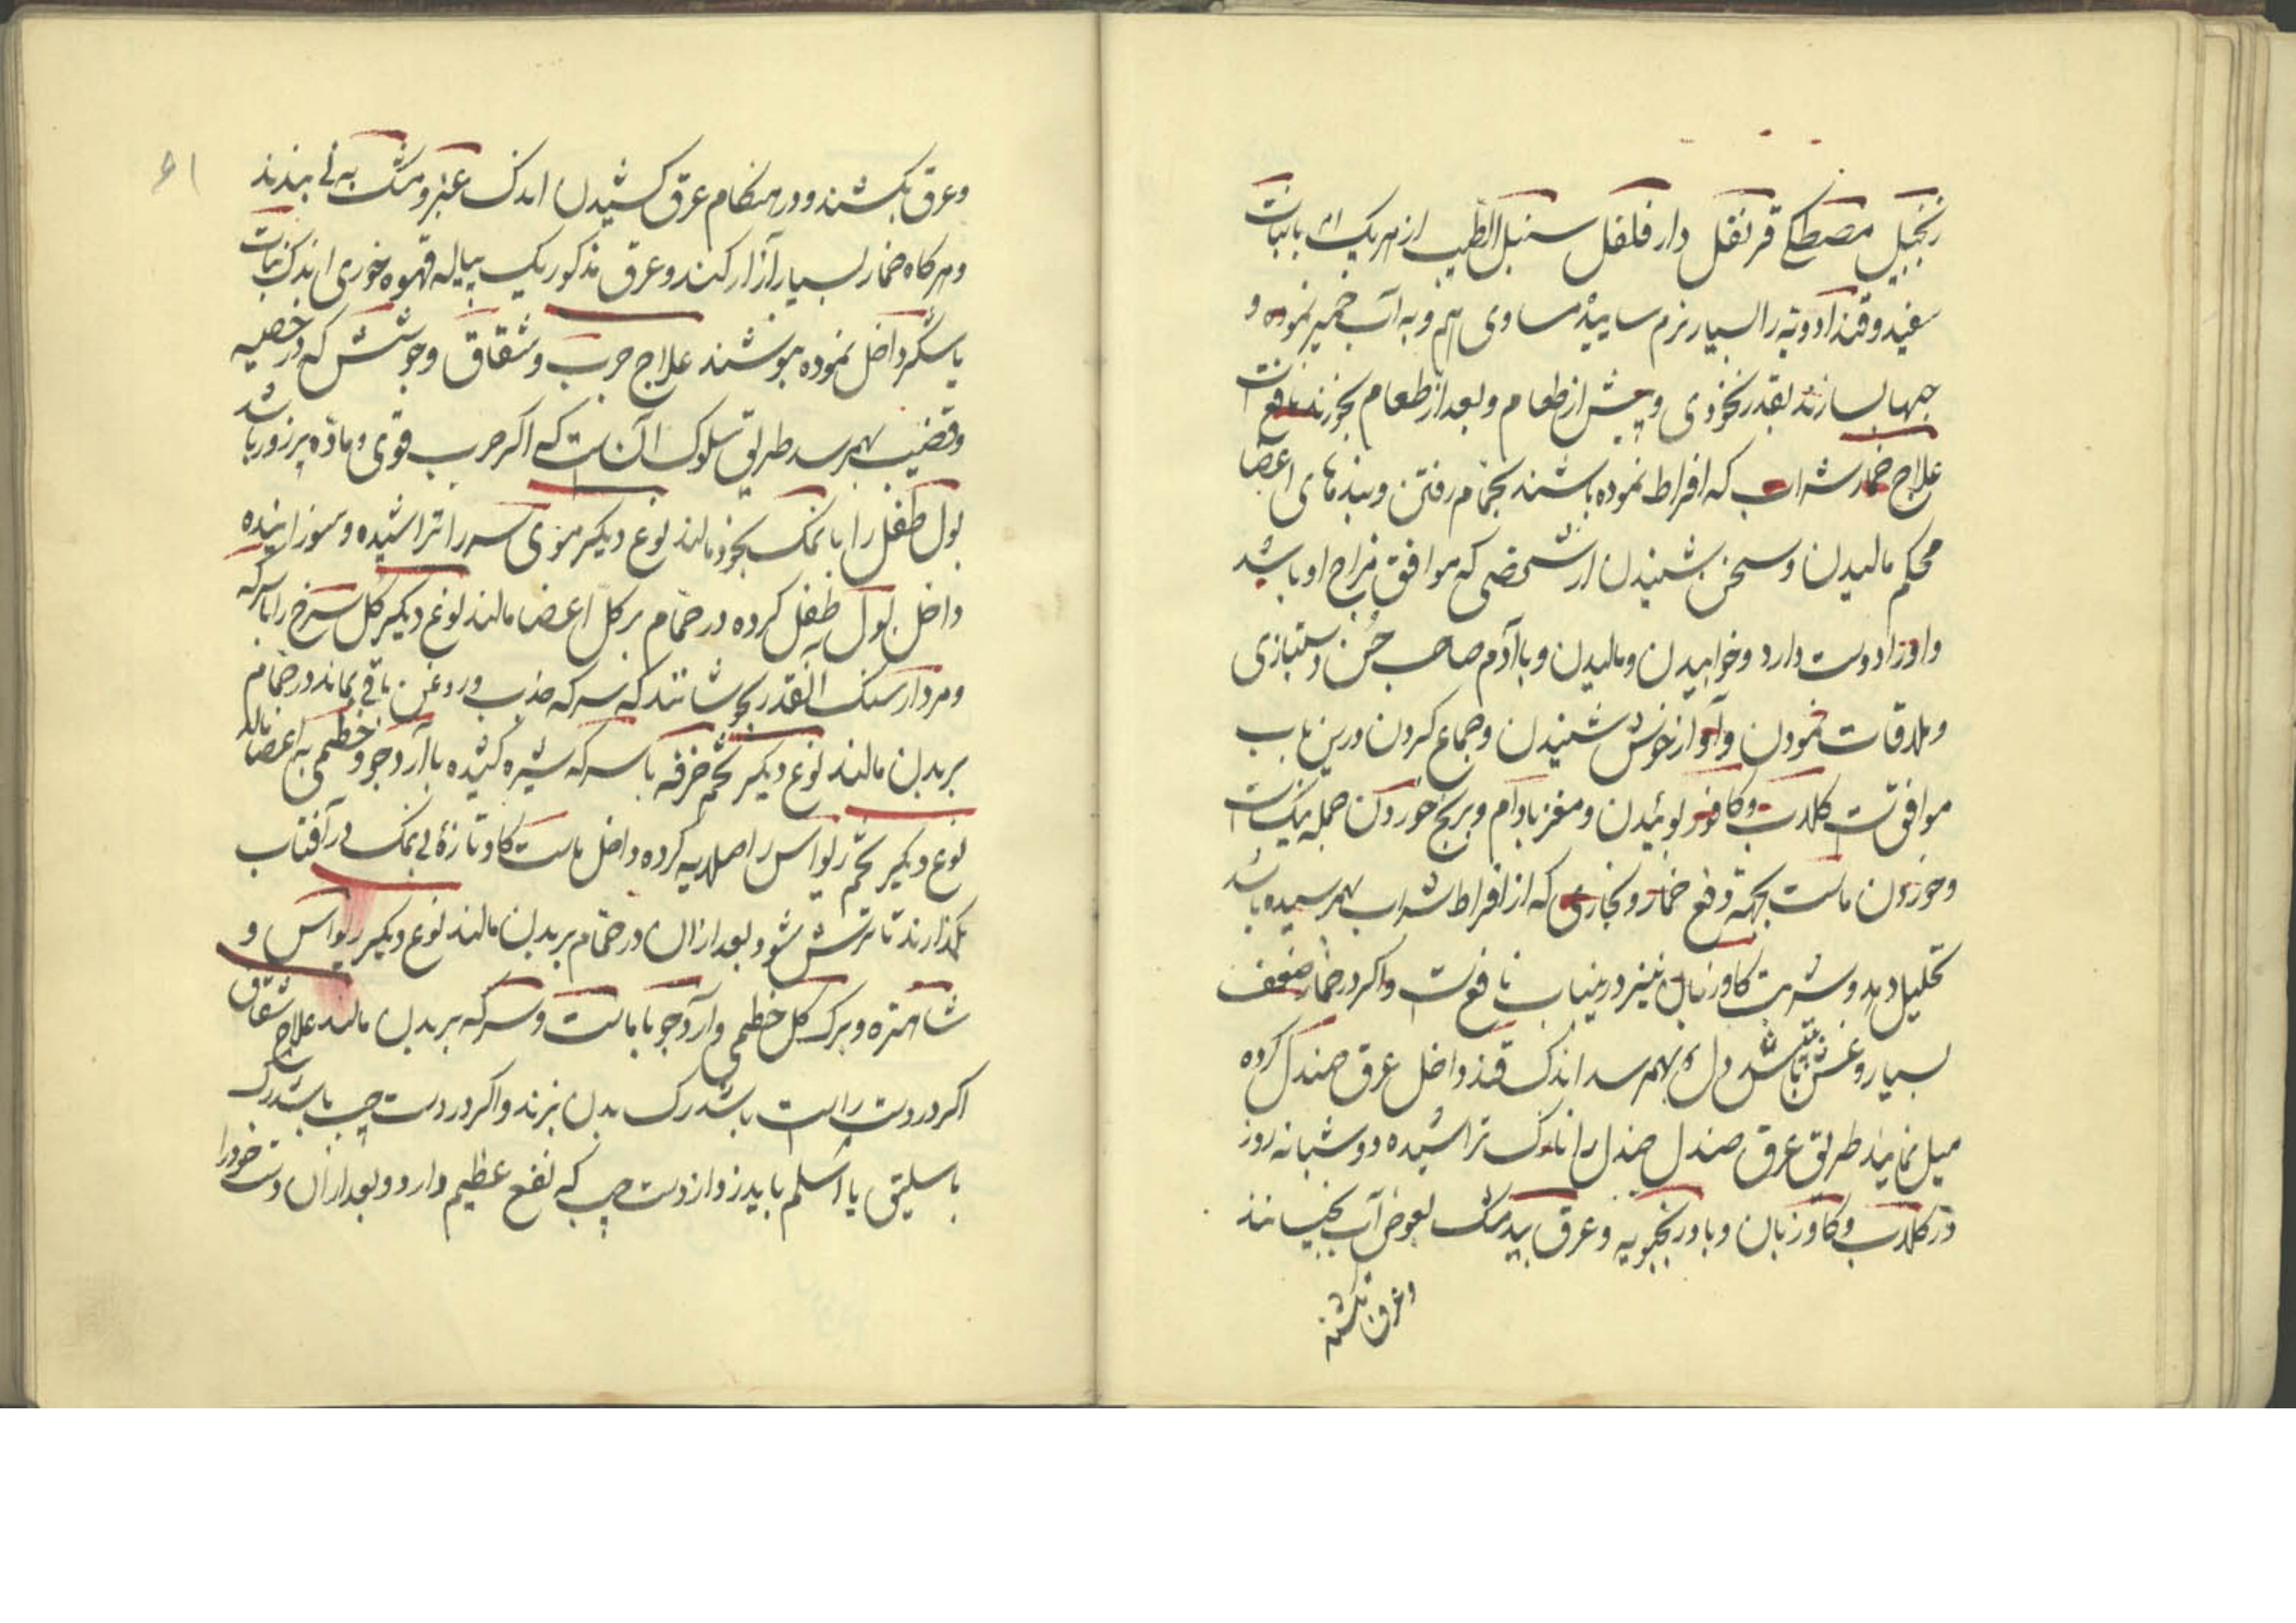 زنجبیل مصطکی قرنفل دارفلفل سنبل الطیب از هریک بانبات
سفید و قند ادویه را بسیار نرم سائیده مساوی هم و به آب خمیر نموده و
حبها بسازند بقدر نخودی و پیش از طعام و بعد از طعام بخورند نافعست
علاج خمار شراب که افراط نموده باشند بحمّام رفتن و بندهای اعضا
محکم مالیدن و سخن شنیدن از شخصی که موافق مزاج او باشد
و او را دوست دارد و خوابیدن و مالیدن و با آدم صاحب حُسن دستبازی
و ملاقات نمودن و آواز خوش شنیدن و جماع کردن درین باب
موافقست کلاب و کافور بوئیدن و مغز بادام و برنج خوردن جمله نیکست
و خوردن ماست بجهة دفع خمار و بخاری که از افراط شراب بهمرسیده باشد
تحلیل دهد و شربت کاوزبان نیز درینباب نافعست و اکر در خمار ضعف
بسیار و غش و تپش دل بهمرسد اندک قند داخل عرق صندل کرده
میل نمایند طریق عرق صندل صندل را نازک تراشیده دو شبانه روز
در کلاب و کاوزبان و بادرنجبویه و عرق بیدمشک بعوض آب بخیسانند
و عرق بکشند
و عرق بکشند و در هنکام عرق کشیدن اندک عنبر و مشک به نی ببندند
و هرکاه خمار بسیار آزار کند و عرق مذکور یک پیاله قهوه خوری اندک نبات
یا شکر داخل نموده بنوشند علاج جرب و شقاق و جوشش که در خصیه
و قضیب بهمرسد طریق سلوک آنست که اکر جرب قوی و مادّه پرزور باشد
بول طفل را با نمک بخود مالند نوع دیکر موی سر را تراشیده و سوزانیده
داخل بول طفل کرده در حمّام بر کل اعضا مالند نوع دیکر کل سرخ را با سرکه
و مردارسنک آنقدر بجوشانند که سرکه جذب و روغن باقی بماند در حمّام
بر بدن مالند نوع دیکر تخم خرفه با سرکه شیره کشیده با آرد جو و خطمی به اعضا مالند
نوع دیکر تخم ریواس را صلایه کرده داخل ماست کاو تازۀ بی نمک در آفتاب
بکذارند تا ترش شود بعد ازان در حمّام بر بدن مالند نوع دیکر ریواس و
شاهتره و برک کل خطمی و آرد جو با ماست و سرکه بر بدن مالند علاج شقاق
اکر در دست راست باشد رک بدن بزنند و اکر در دست چپ باشد رک
باسلیق یا اسلم باید زد از دست چپ که نفع عظیم دارد و بعد ازان دست خود را